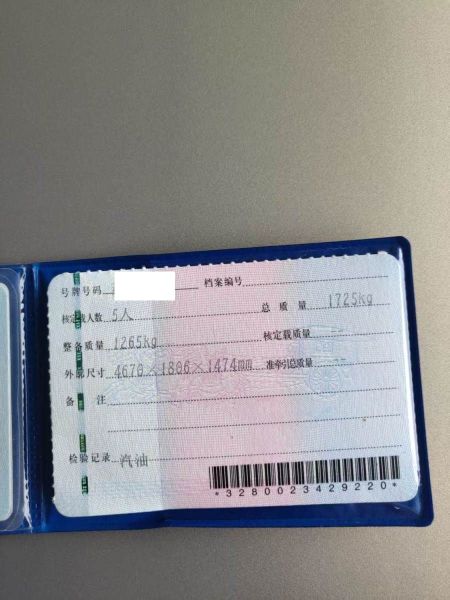 号牌号码 档案编号
核定载人数 5人 总质量 1725kg
整备质量 1265kg 核定载质量
外廓尺寸 4670×1806×1474mm 准牵引总质量
备注
检验记录 汽油
*3280023429220*